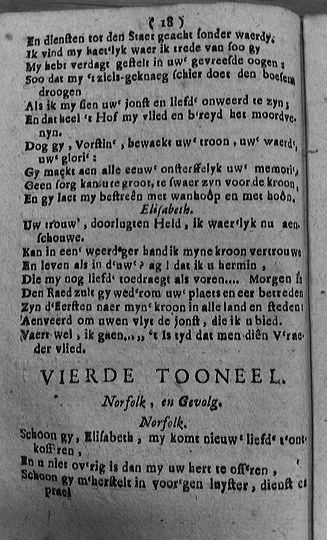 ( 18 )
En diensten tot den Staet geacht sonder waerdy;
Ik vind my haet'lyk waer ik trede van soo gy
My hebt verdagt gestelt in uw' gevreesde oogen;
Soo dat my 't ziels-geknaeg schier doet den boesem
droogen
Als ik my sien uw' jonst en liefd' onweerd te zyn;
En dat heel 't Hof my vlied en b'reyd het moordve-
nyn.
Dog gy, Vorstin', bewaekt uw' troon, uw' waerd',
uw' glori':
Gy maekt aen alle eeuw' onsterffelyk uw' memori',
Geen sorg kan u te groot, te swaer zyn voor de kroon,
En gy laet my bestreên met wanhoôp en met hoôn.
Elisabeth.
Uw trouw', doorlugten Held, ik waerlyk nu aen-
schouwe.
Kan in een' weerd'ger hand ik myne kroon vertrouwe
En leven als in d'uw'? ag! dat ik u hermin,
Die my nog liefd' toedraegt als voren.... Morgen in
Den Raed zult gy wed'rom uw' plaets en eer betreden
Zyn d'eersten naer myn' kroon in alle land en steden
Aenveerd om uwen vlyt de jonst, die ik u bied.
Vaert wel, ik gaen..,,, 't Is tyd dat men dién V'rae-
der vlied.
VIERDE TOONEEL.
Norfolk, en Gevolg.
Norfolk.
Schoon gy, Elisabeth, my komt nieuw' liefd' t'ont-
koff'ren,
En u niet ov'rig is dan my uw hert te off'ren,
Schoon gy m'herstelt in voor'gen luyster, dienst en
prael